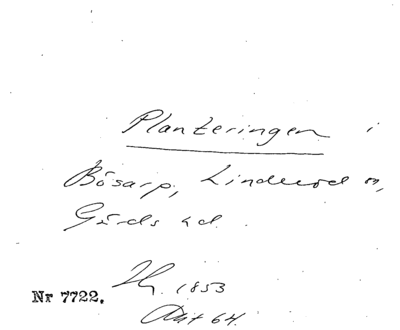 Planteringen i
Bösarp, Linderöd sn,
Gärds hd.
Nr 7722.
1853
Akt 64.